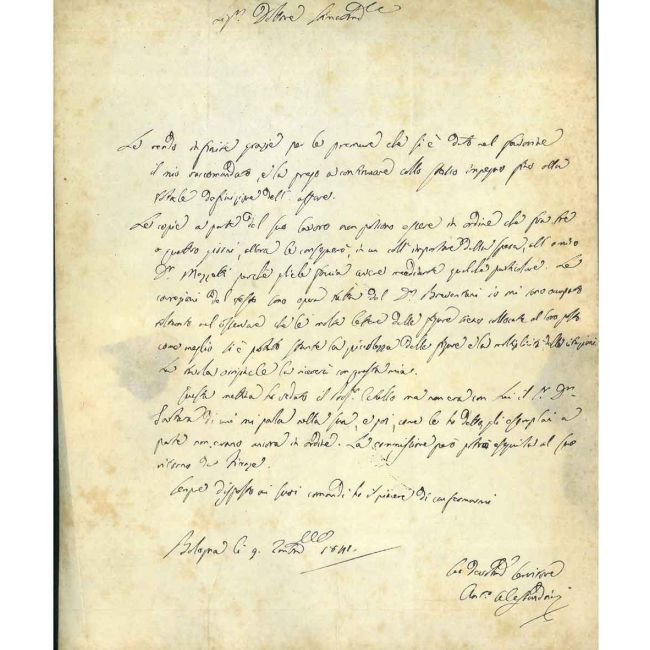 Sig.r Dottore
Le rendo infinite grazie per le premure che si è dato nel favorire
il mio raccomandato, e la prego a continuare collo stesso impegno fino alla
totale definizione dell'affare.
Le copie a parte del suo lavoro non potranno essere in ordine che fra tre
o quattro giorni, allora le consegnerò, in un coll'importare della spesa, all'amico
D.r perchè gliele faccia avere mediante qualche particolare. Le
correzioni del testo sono opera tutta del D.r io mi sono occupato
nel osservare che le molte lettere delle figure siano collocate al loro posto
come meglio si è potuto stante la piccolezza delle figure e la molteplicità delle
La tavola originale la riceverà con questa mia.
Questa mattina ho veduto il Prof.r ma non era con lui il S.r D.r
di cui mi parla nella sua, e poi, come le ho detto, gli esemplari a
parte non erano ancora in ordine. La commissione però potrà eseguirsi al suo
ritorno da Firenze.
Sempre disposto ai suoi comandi ho il piacere di confermarmi
Bologna li 9. 1841.
Suo Devot.mo Servitore
Ant.o Alessandrini